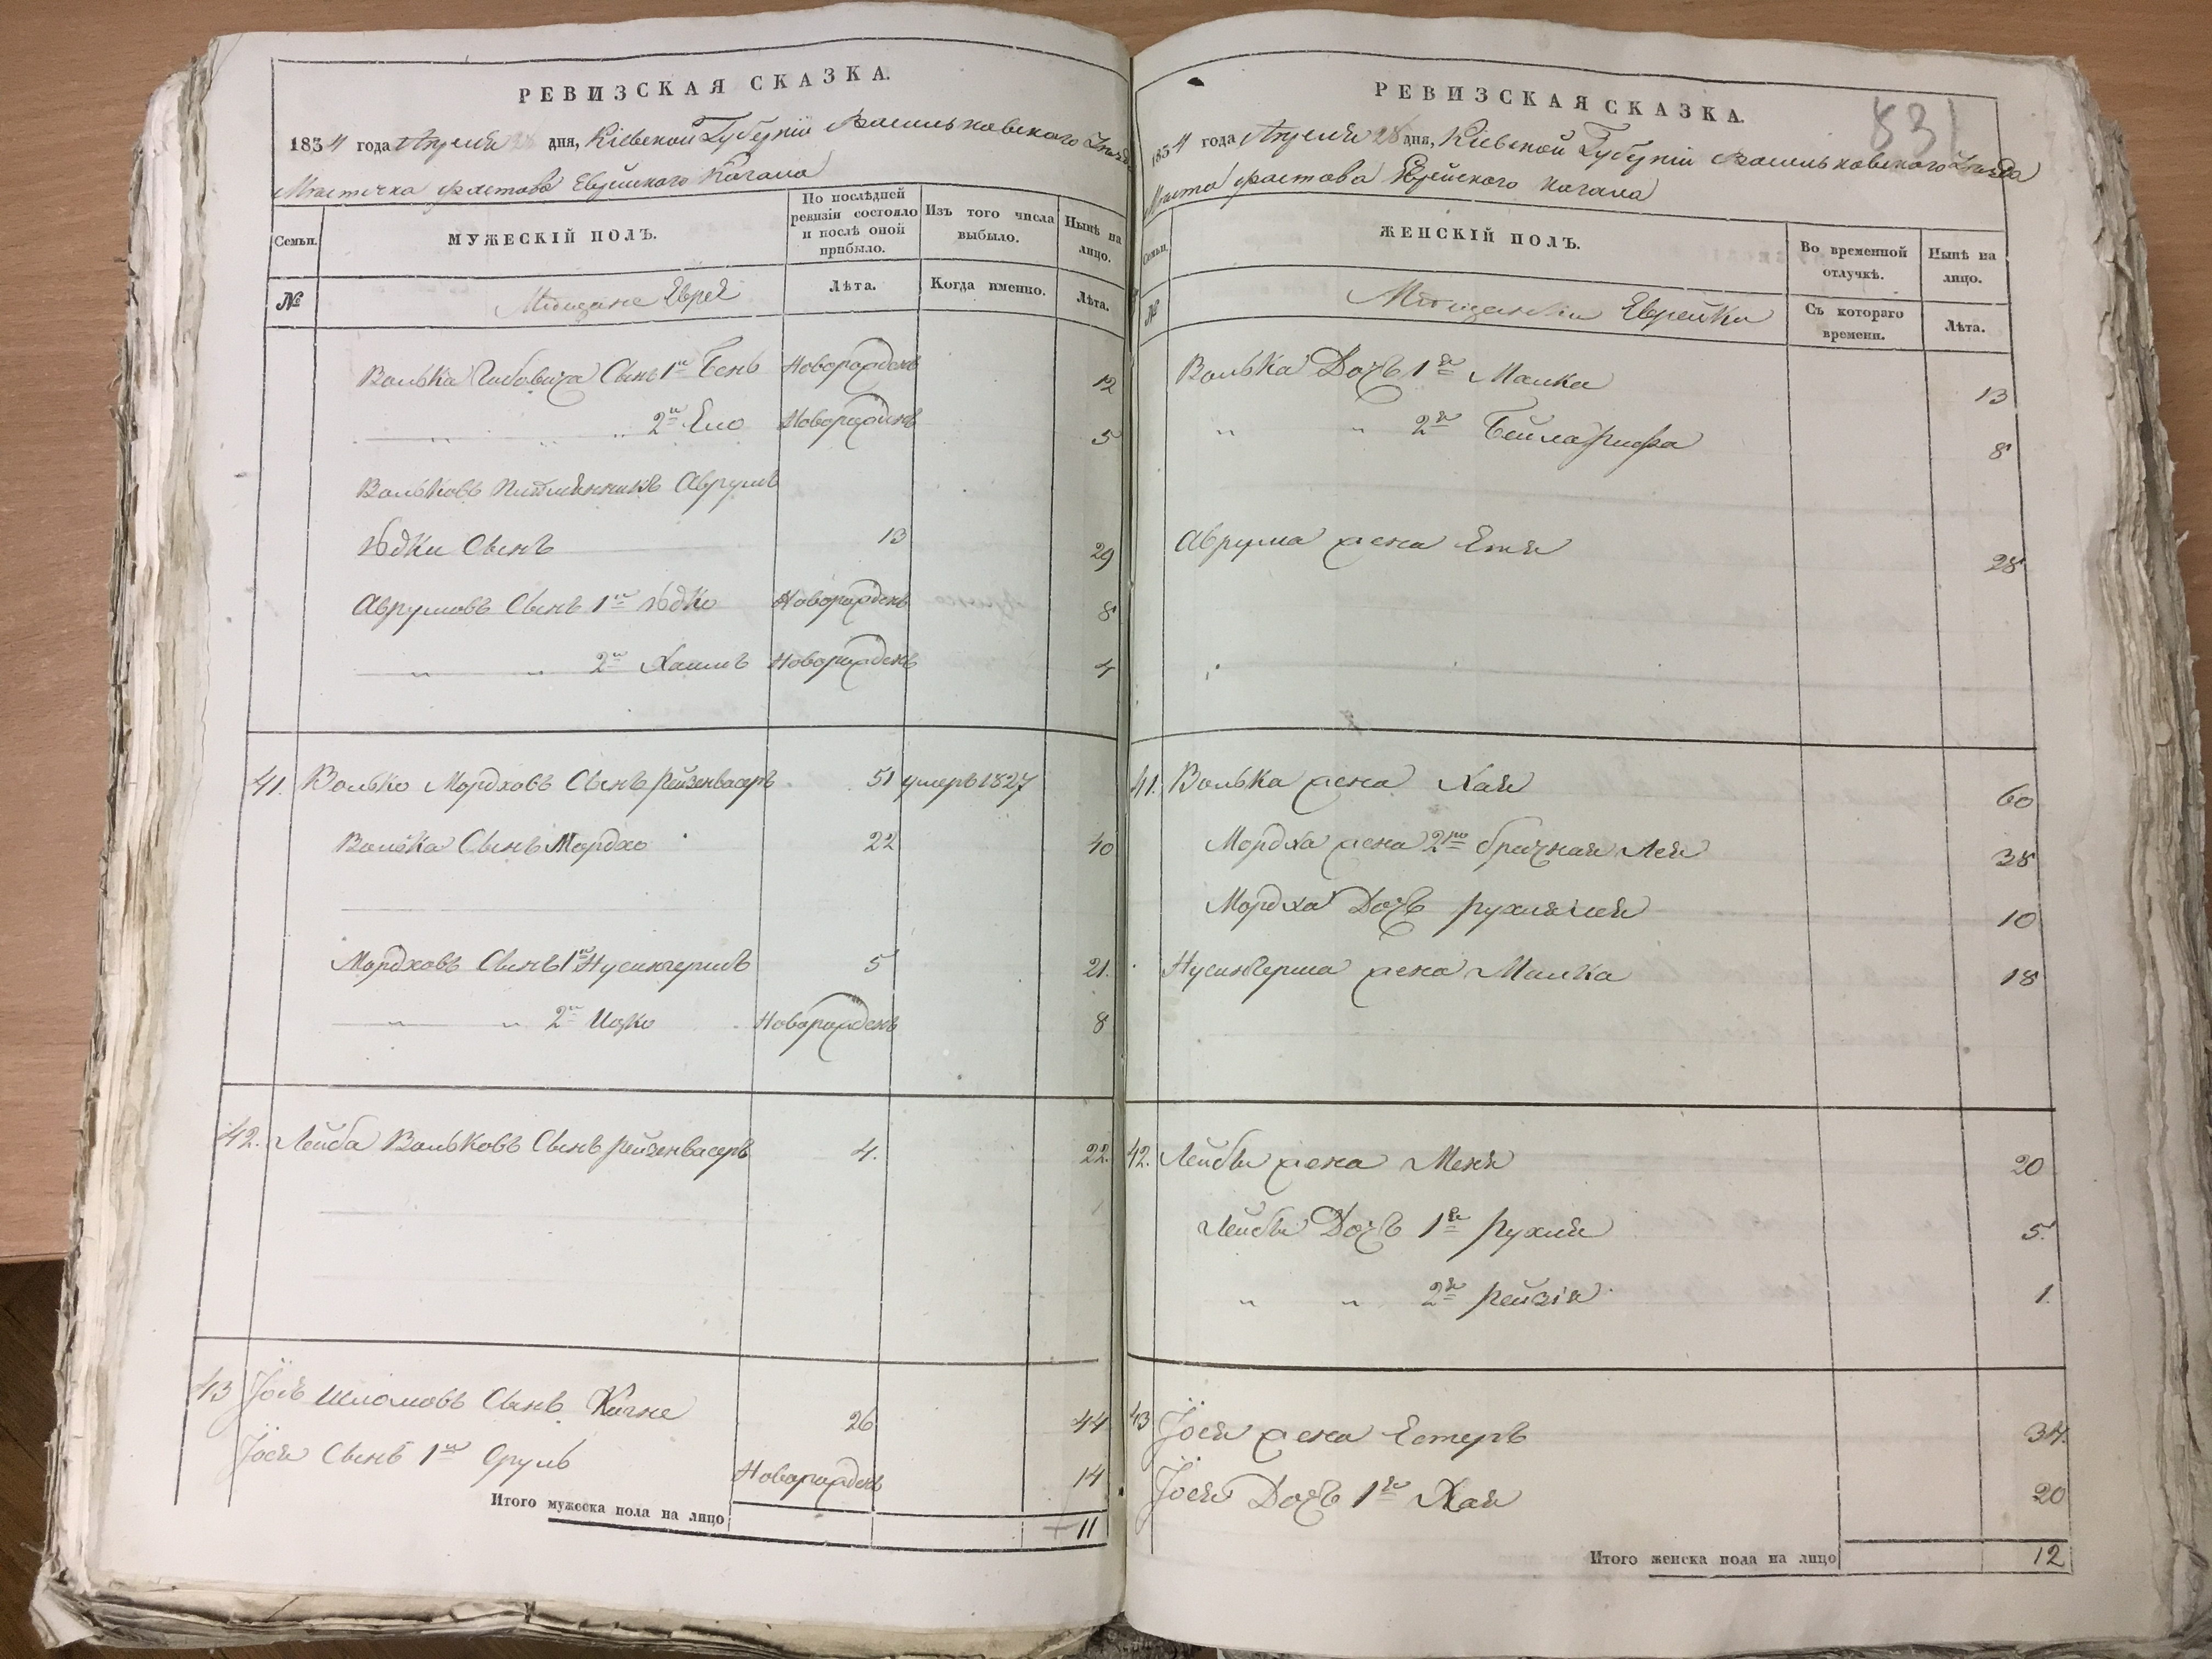 РЕВИЗСКАЯ СКАЗКА.
1834 года Апреля 28 дня, Кіевской Губерніи Васильковского Уезда
Местечка Фастова Еврейского Кагала
Семьи.
МУЖЕСКІЙ ПОЛЪ.
По последней ревизіи состояло и послѣ оной прибыло.
Изъ того числа выбыло.
Нынѣ на лицо.
№
Мѣщане Евреи
Лѣта.
Когда именно.
Лѣта.
Волька Сынъ 1й Бень Новорожденъ 12
" " " 2й Ело Новорожденъ 5
Вольковъ племянникъ Аврумъ
Юдки Сынъ 13 29
Аврумовъ Сынъ 1й Юдко Новорожденъ 8
" " 2й Хаимъ Новорожденъ 4
41. Волько Мордховъ Сынъ Рейзенвасеръ 51 умеръ 1827
Волька Сынъ Мордхо 22 40
Мордховъ Сынъ 1й Нусингершъ 5 21.
" " 2й Ицко Новорожденъ 8
42. Лейба Вольковъ Сынъ Рейзенвасеръ 4. 22.
43 Іось Шломовъ Сынъ 26 44
Іося Сынъ 1й Срулъ Новорожденъ 14
Итого мужеска пола на лицо 11
РЕВИЗСКАЯ СКАЗКА.
831
1834 года Апреля 28 дня, Кіевской Губерніи Васильковского Уезда
Места Фастова Еврейского Кагала
Семьи.
ЖЕНСКІЙ ПОЛЪ.
Во временной отлучкѣ.
Нынѣ на лицо.
№
Мѣщанки Еврейки
Съ котораго времени.
Лѣта.
Волька Дочь 1я Малка 13
" " 2я Бейла Рифа 8
Аврума жена Етя 28
41. Волька жена Хая 60
Мордха жена 2го брачная Лея 38
Мордха Дочь Рухля Лея 10
Нусингерша жена Малка 18
42. Лейбы жена Меня 20
Лейбы Дочь 1я Рухля 5.
" " 2я Рейзія 1.
43 Іося жена Естеръ 34.
Іося Дочь 1я Хая 20
Итого женска пола на лицо 12